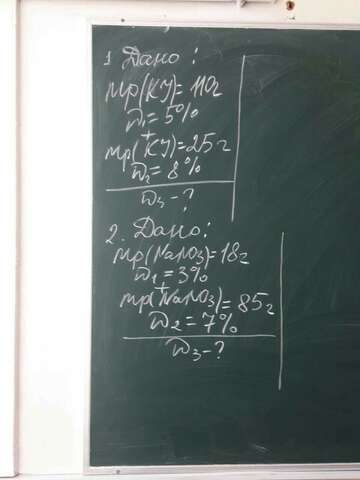 1 Дано:
mр(KJ)=110г
ω₁=5%
+
mр(KJ)=25г
ω₂=8%
ω₃-?
2. Дано:
mр(NaNO₃)=18г
ω₁=3%
+
mр(NaNO₃)=85г
ω₂=7%
ω₃-?